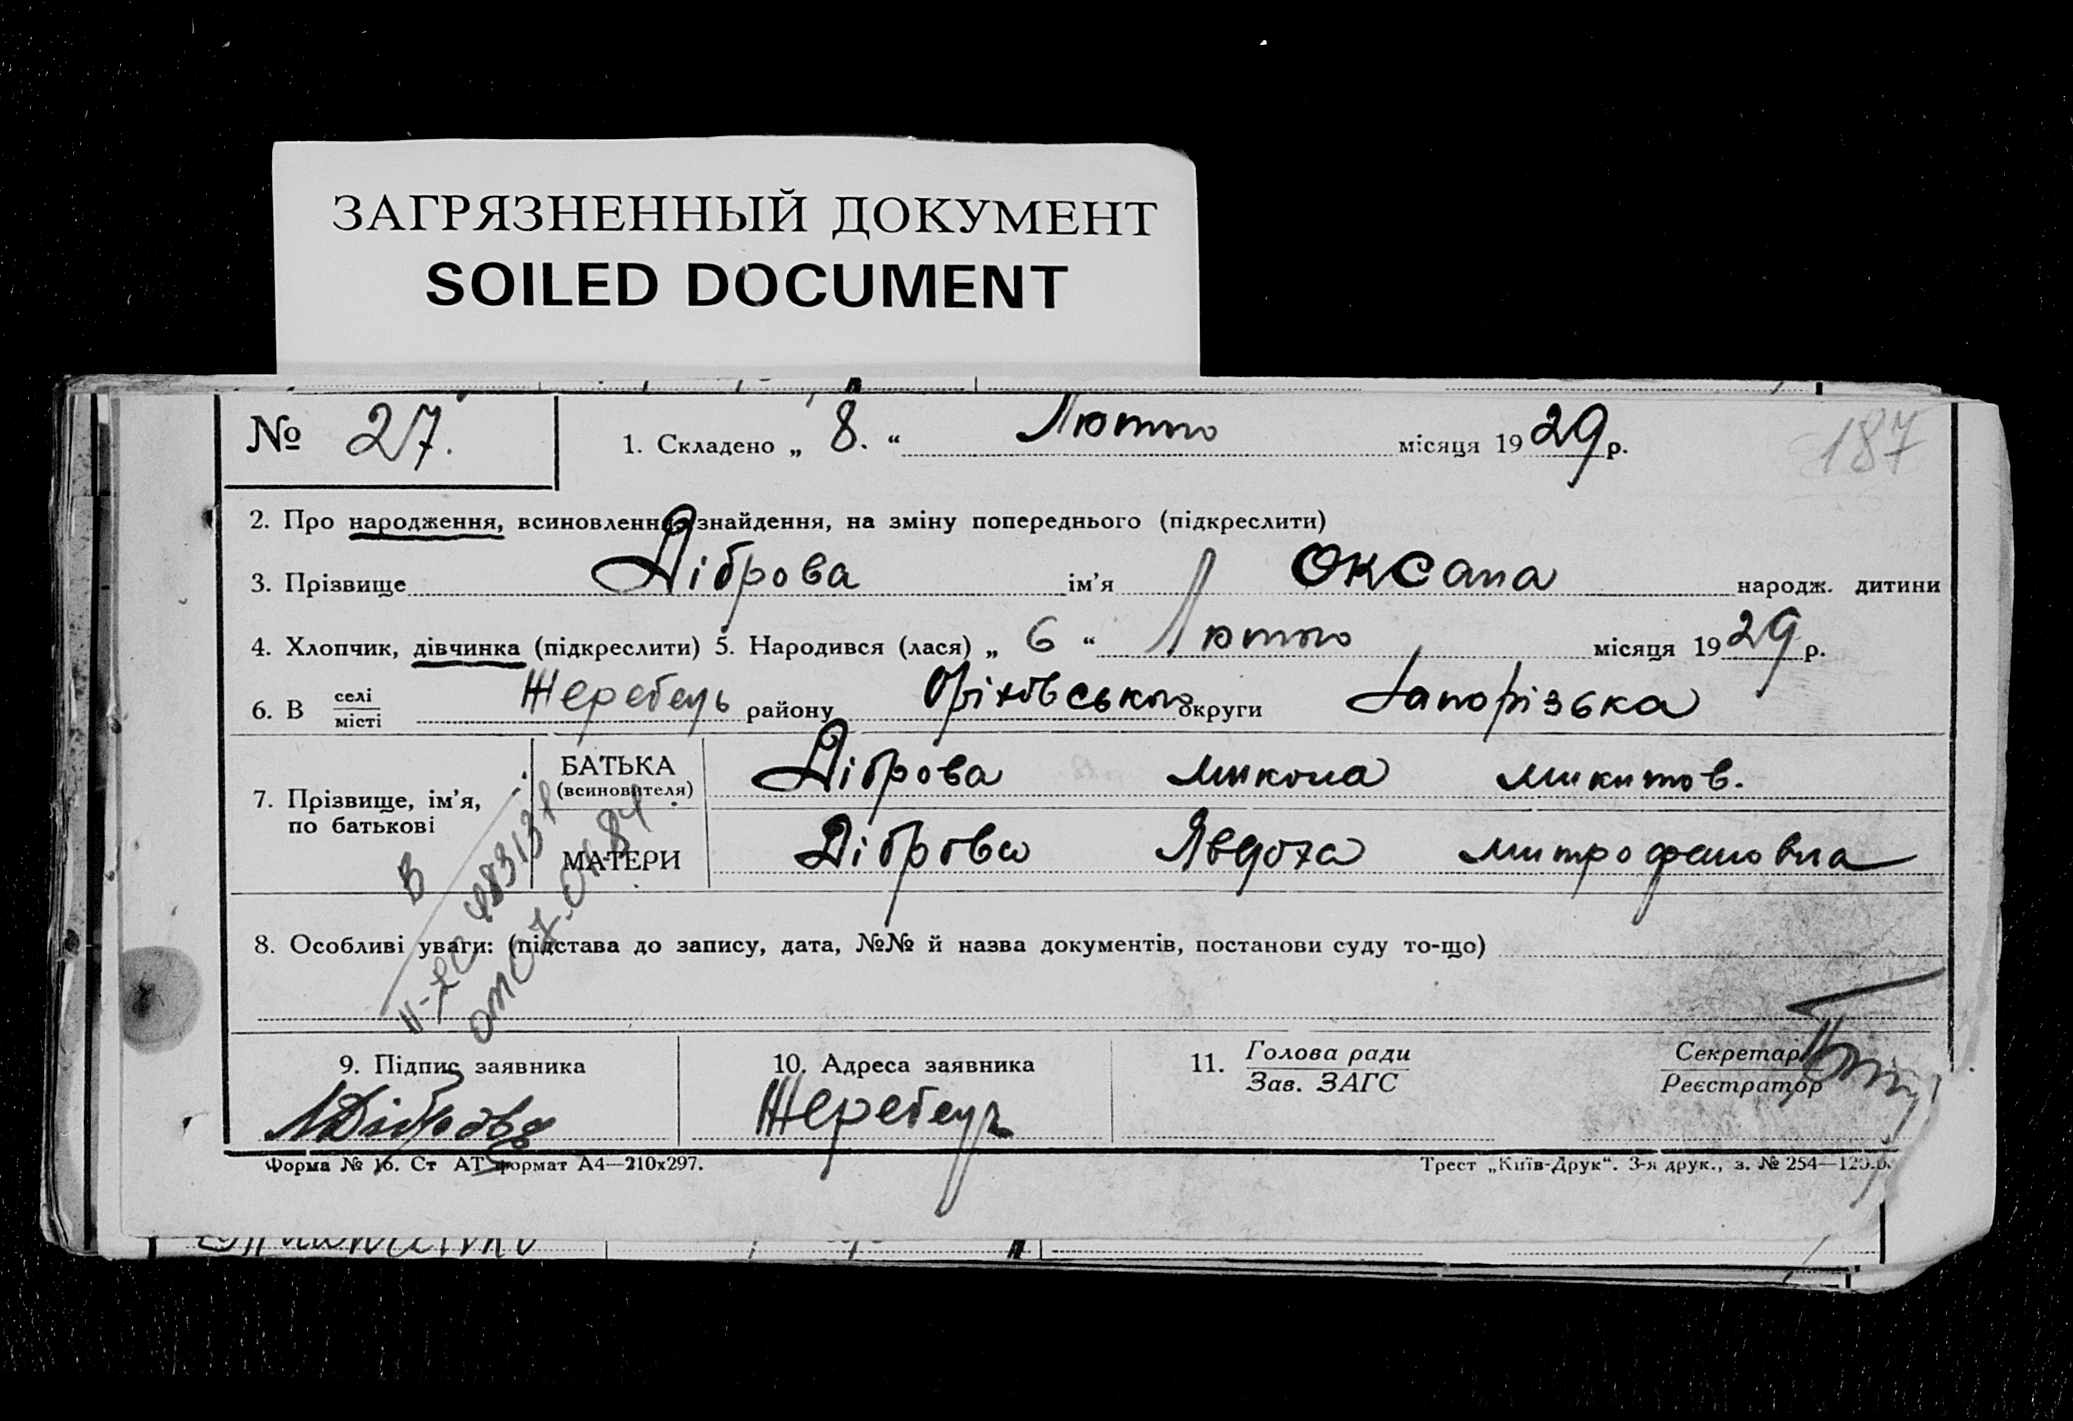 ЗАГРЯЗНЕННЫЙ ДОКУМЕНТ
SOILED DOCUMENT
№ 27. 1. Складено „ 8. “ Лютого місяця 1929 р. 187
2. Про народження, всиновлення, знайдення, на зміну попереднього (підкреслити)
3. Прізвище Діброва ім’я Оксана народж. дитини
4. Хлопчик, дівчинка (підкреслити) 5. Народився (лася) „ 6 “ Лютого місяця 1929 р.
6. В селі Жеребець району Оріхівського округи Запорізька
місті
7. Прізвище, ім’я, по батькові
БАТЬКА (всиновителя) Діброва Микола Микитов.
МАТЕРИ Діброва Явдоха Митрофановна
8. Особливі уваги: (підстава до запису, дата, №№ й назва документів, постанови суду то-що)
9. Підпис заявника 10. Адреса заявника 11. Голова ради Секретар
Зав. ЗАГС Реєстратор
МДіброва Жеребець
Форма № 16. Ст АТ формат А4—210х297. Трест „Київ-Друк“. 3-я друк., з. № 254—